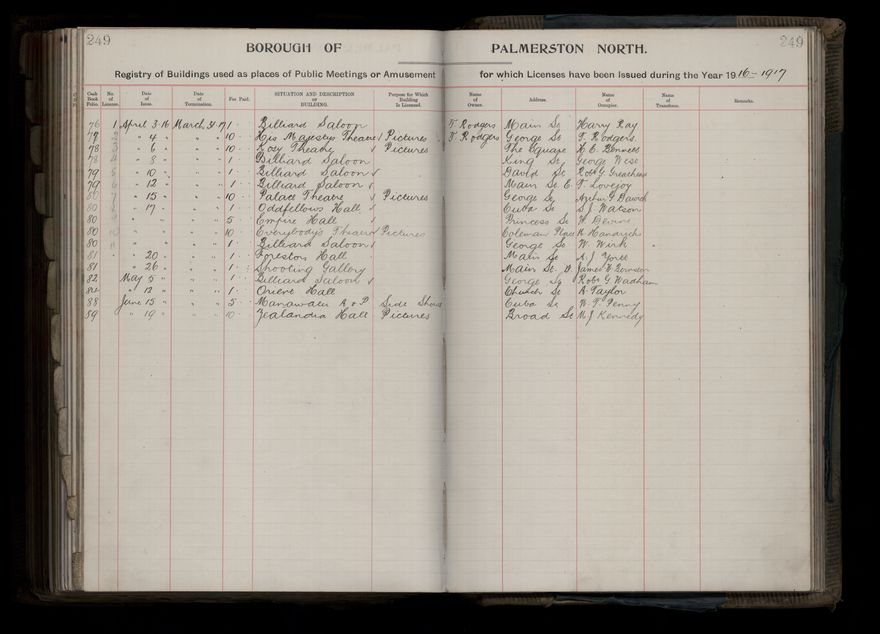 249
249
BOROUGH OF PALMERSTON NORTH.
Registry of Buildings used as places of Public Meetings or Amusement for which Licenses have been Issued during the Year 1916-1917
Cash Book Folio. No. of License. Date of Issue. Date of Termination. Fee Paid. SITUATION AND DESCRIPTION OF BUILDING. Purpose for Which Building Is Licensed. Name of Owner. Address. Name of Occupier. Name of Transferee. Remarks.
76 1 April 3 16 March 31 17 1 Billiard Saloon T Rodgers Main St Harry Ray
77 2 " 4 " " " 10 His Majestys Theatre Pictures T Rodgers George St T. Rodgers
78 3 " 6 " " " 10 Kosy Theatre Pictures The Square H. E. Bennett
78 4 " 8 " " " 1 Billiard Saloon King St George West
79 5 " 10 " " " 1 Billiard Saloon David St Robt G.
79 6 " 12 " " " 1 Billiard Saloon Main St E. T Lovejoy
80 7 " 15 " " " 10 Palace Theatre Pictures George St Arthur P
80 8 " 17 " " " 1 Oddfellows Hall Cuba St S J Watson
80 9 " " " 5 Empire Hall Princess St H Devine
80 10 " " " 10 Everybody's Theatre Pictures Coleman Place
80 11 " " " 1 Billiard Saloon George St W.
81 " 20 " " " 1 Foresters Hall Main St A. J
81 " 26 " " " 1 Shooting Gallery Main St. W. James W.
82 May 5 " " " 1 Billiard Saloon George St Robt G Wadham
84 " 12 " " " 1 Orient Hall Church St A. Taylor
88 June 15 " " " 5 Manawatu A & P Side Shows Cuba St W. T Penny
89 " 19 " " " 10 Zealandia Hall Pictures Broad St M J Kennedy